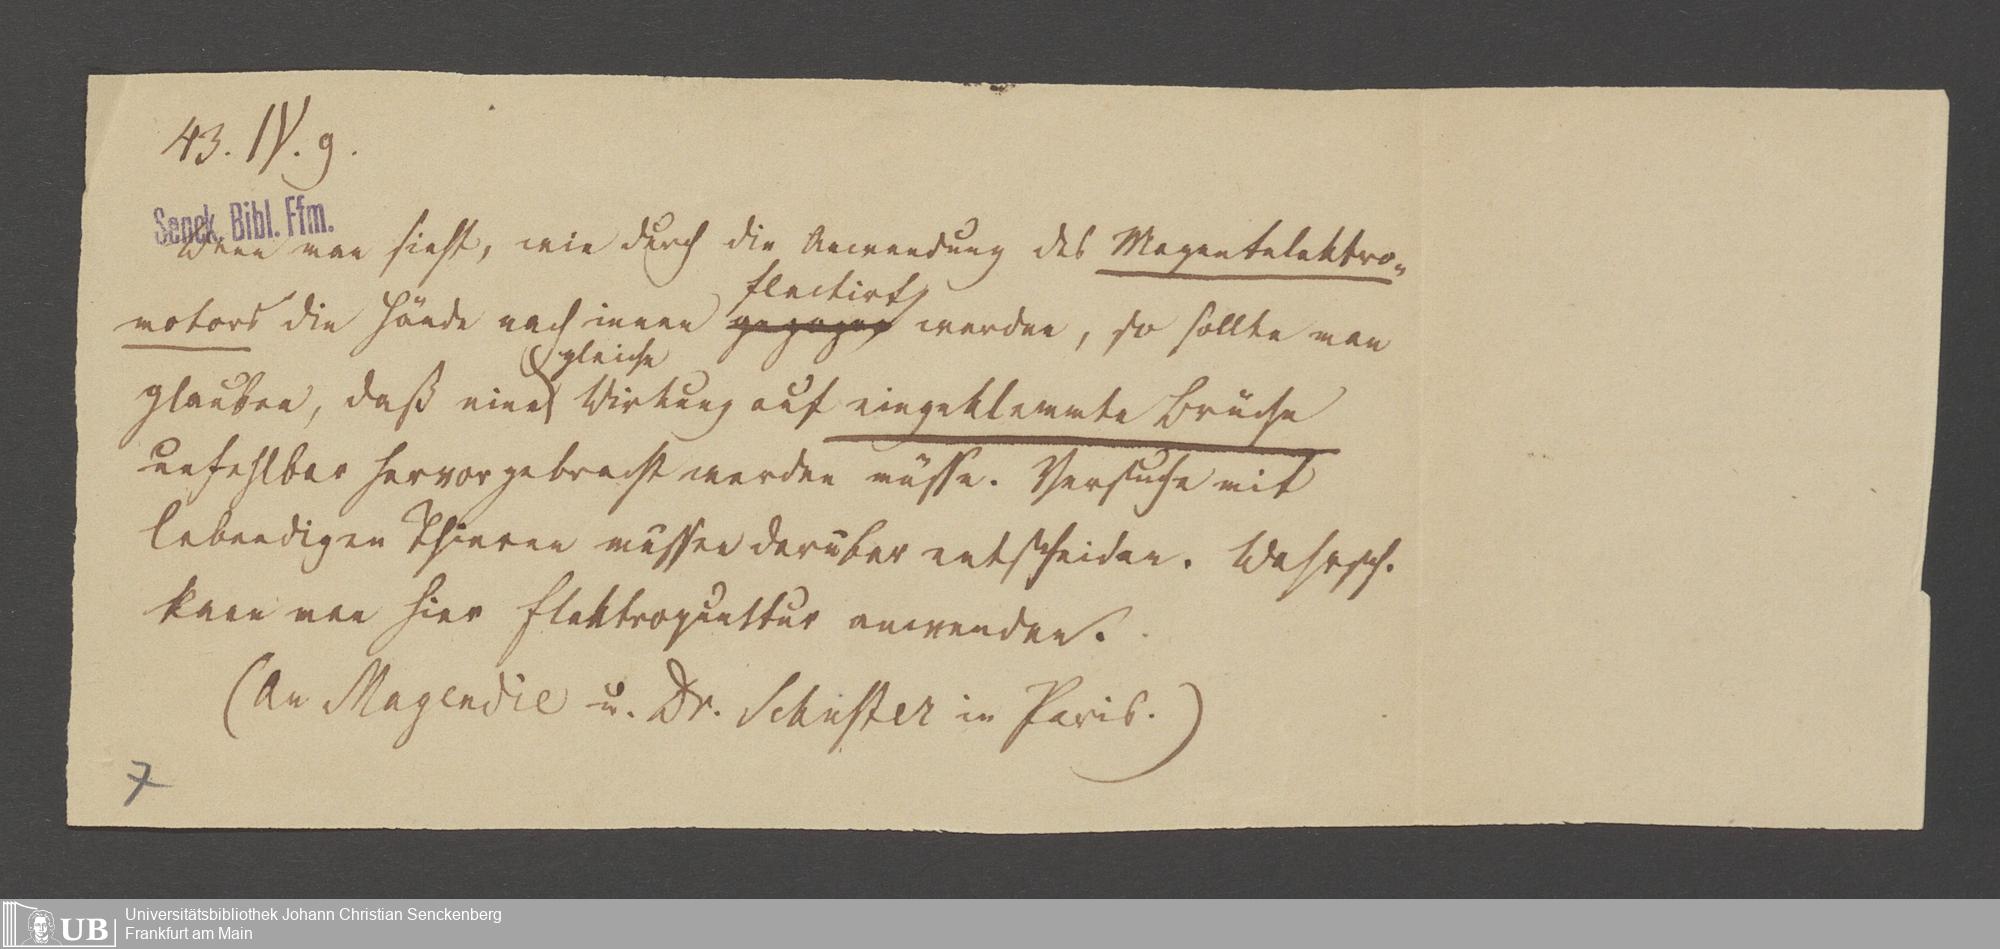 43. IV. 9.
Senck. Bibl. Ffm.
Wenn man sieht, wie durch die Anwendung des Magentelektro-
flectirt
motors die Hände nach innen gezogen werden, so sollte man
gleiche
glauben, daß eine Wirkung auf eingeklemmte Brüche
unfehlbar hervorgebracht werden müsse. Versuche mit
lebendigen Thieren müssen darüber entscheiden. Wahrsch.
kann man hier Elektropunktur anwenden.
(An Magendie u. Dr. Schuster in Paris.)
7
UB Universitätsbibliothek Johann Christian Senckenberg
Frankfurt am Main